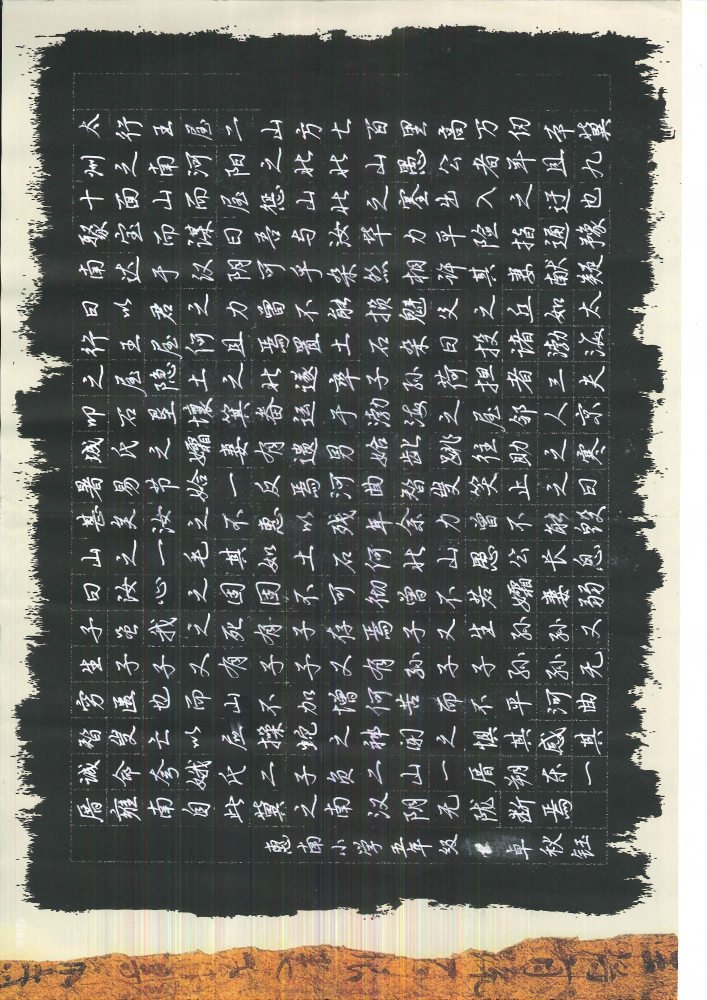 太行王屋二山方七百里高万仞本冀
州之南河阳之北北山愚公者年且九
十面山而屋惩山北之塞出入之迂也
聚室而谋曰吾与汝毕力平险指通豫
南达于汉阴可乎杂然相许其妻献疑
曰以君之力曾不能损魁父之丘如太
行王屋何且焉置土石杂曰投诸渤海
之尾隐土之北遂率子孙荷担者三夫
叩石垦壤箕畚运于渤海之尾邻人京
城氏之孀妻有遗男始龀跳往助之寒
暑易节始一反焉河曲智叟笑止之曰
甚矣汝之不惠以残年余力曾不能毁
山之一毛其如土石何北山愚公长息
曰汝心之固固不可彻曾不若孀妻弱
子虽我之死有子存焉子又生孙孙又
生子子又有子子又有孙子子孙孙无
穷匮也而山不加增何苦而不平河曲
智叟亡以应操蛇之神闻之惧其感其
诚命夸娥氏二子负二山一厝朔东一
厝雍南自此冀之南汉阴无陇断焉
惠南小学五年级 卓秋钰